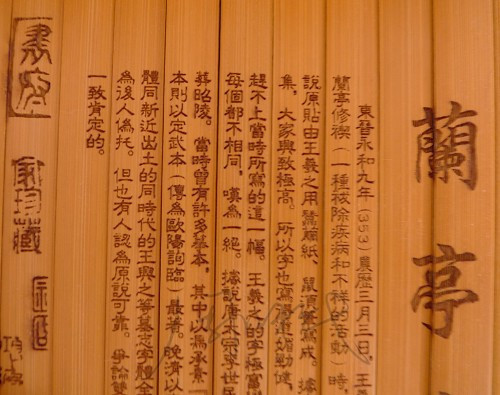 蘭亭
東晉永和九年(353)農歷三月三日,王
蘭亭修禊(一種祓除疾病和不祥的活動)時,
說原貼由王羲之用蠶繭紙、鼠須筆寫成。據
集,大家興致極高。所以字也寫得遒媚勁健,
趕不上當時所寫的這一幅。王羲之的字極富
每個都不相同,嘆為一絕。據說唐太宗李世民
葬昭陵。當時曾有許多摹本,其中以馮承素
本則以定武本(傳為歐陽詢臨)最著。晚清以
體同新近出土的同時代的王興之等墓志字體全
為後人偽托。但也有人認為原說可靠。爭論雙
一致肯定的。
家珍藏